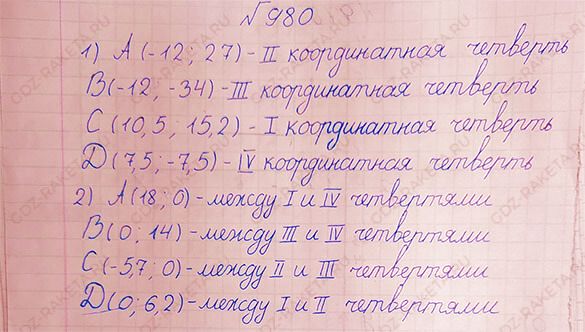 №980
1) А(-12; 27) - II координатная четверть
В(-12; -34) - III координатная четверть
С(10,5; 15,2) - I координатная четверть
D(7,5; -7,5) - IV координатная четверть
2) А(18; 0) - между I и IV четвертями
В(0; 14) - между III и IV четвертями
С(-5,7; 0) - между II и III четвертями
D(0; 6,2) - между I и II четвертями
GDZ-RAKETA.RU